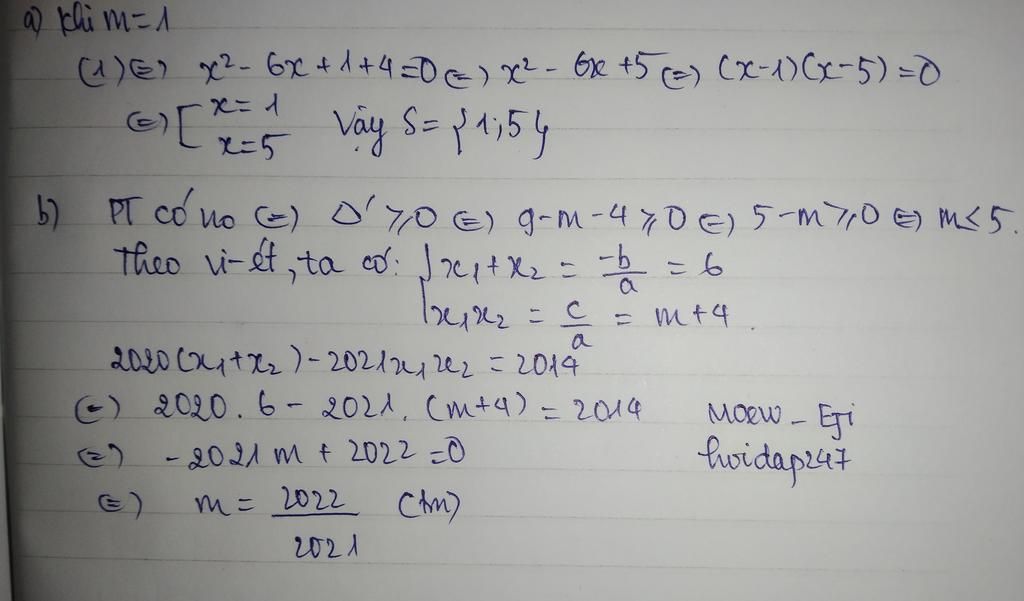 a) Khi m = 1
(1) ⇔ x² - 6x + 1 + 4 = 0 ⇔ x² - 6x + 5 ⇔ (x-1)(x-5) = 0
⇔ [ x = 1
x = 5 Vậy S = {1; 5}
b) PT có no ⇔ Δ' ≥ 0 ⇔ 9 - m - 4 ≥ 0 ⇔ 5 - m ≥ 0 ⇔ m ≤ 5.
Theo vi-ét, ta có: { x₁ + x₂ = -b/a = 6
x₁x₂ = c/a = m + 4.
2020(x₁ + x₂) - 2021x₁x₂ = 2014
⇔ 2020 . 6 - 2021 . (m+4) = 2014
⇔ -2021m + 2022 = 0
⇔ m = 2022/2021 (tm)
Moew - Eji
hoidap247